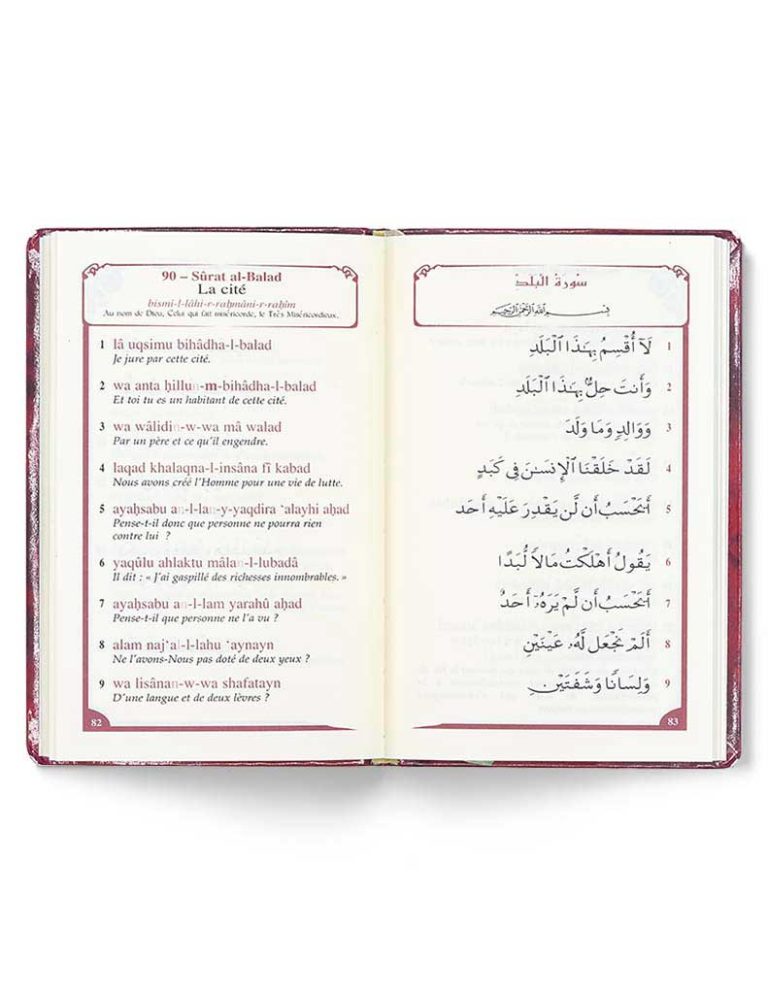 90 – Sûrat al-Balad
La cité
bismi-l-lâhi-r-raḥmâni-r-raḥîm
Au nom de Dieu, Celui qui fait miséricorde, le Très Miséricordieux.
1 lâ uqsimu bihâdha-l-balad
Je jure par cette cité.
2 wa anta ḥillun-m-bihâdha-l-balad
Et toi tu es un habitant de cette cité.
3 wa wâlidin-w-wa mâ walad
Par un père et ce qu'il engendre.
4 laqad khalaqna-l-insâna fî kabad
Nous avons créé l'Homme pour une vie de lutte.
5 ayaḥsabu an-l-lan-y-yaqdira ‘alayhi aḥad
Pense-t-il donc que personne ne pourra rien
contre lui ?
6 yaqûlu ahlaktu mâlan-l-lubadâ
Il dit : « J'ai gaspillé des richesses innombrables. »
7 ayaḥsabu an-l-lam yarahû aḥad
Pense-t-il que personne ne l'a vu ?
8 alam naj‘al-l-lahu ‘aynayn
Ne l'avons-Nous pas doté de deux yeux ?
9 wa lisânan-w-wa shafatayn
D'une langue et de deux lèvres ?
82
سُورَةُ الْبَلَد
بِسْمِ اللَّهِ الرَّحْمَٰنِ الرَّحِيمِ
1 لَآ أُقْسِمُ بِهَـٰذَا الْبَلَدِ
2 وَأَنتَ حِلٌّۢ بِهَـٰذَا الْبَلَدِ
3 وَوَالِدٍ وَمَا وَلَدَ
4 لَقَدْ خَلَقْنَا الْإِنسَـٰنَ فِى كَبَدٍ
5 أَيَحْسَبُ أَن لَّن يَقْدِرَ عَلَيْهِ أَحَدٌ
6 يَقُولُ أَهْلَكْتُ مَالًا لُّبَدًا
7 أَيَحْسَبُ أَن لَّمْ يَرَهُۥٓ أَحَدٌ
8 أَلَمْ نَجْعَل لَّهُۥ عَيْنَيْنِ
9 وَلِسَانًا وَشَفَتَيْنِ
83